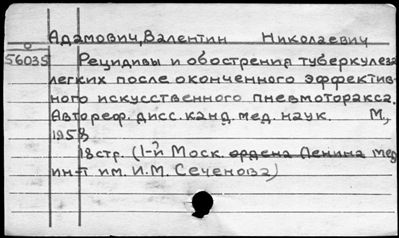 Адамович, Валентин Николаевич
56035 Рецидивы и обострения туберкулеза
легких после оконченного эффектив-
ного искусственного пневмоторакса.
Автореф. дисс. канд. мед. наук. М.,
1958
18стр. (1-й Моск. ордена Ленина мед
ин-т им. И.М. Сеченова)